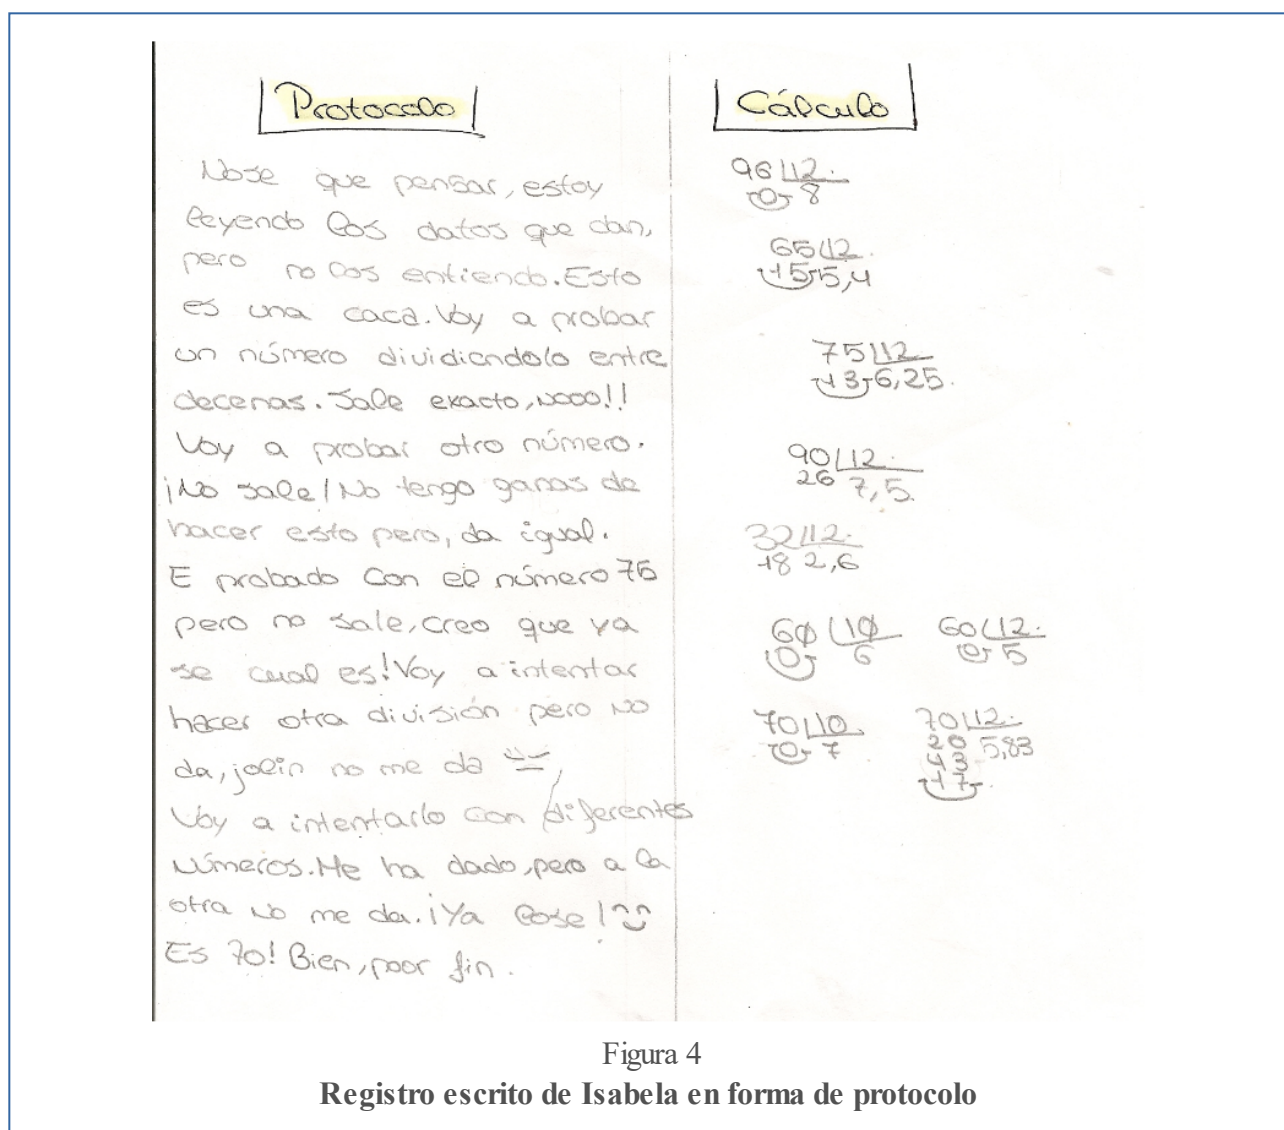 Protocolo
Nose que pensar, estoy
leyendo los datos que dan,
pero no los entiendo. Esto
es una caca. Voy a probar
un número dividiendolo entre
decenas. Sale exacto, nooo!!
Voy a probar otro número.
¡No sale! No tengo ganas de
hacer esto pero, da igual.
E probado con el número 75
pero no sale, creo que ya
se cual es! Voy a intentar
hacer otra división pero no
da, jolin no me da
Voy a intentarlo con diferentes
números. Me ha dado, pero a la
otra no me da. ¡Ya lose!
Es 70! Bien, poor fin.
Cálculo
96 12
0 8
65 12
15 5,4
75 12
13 6,25
90 12
26 7,5
32 12
18 2,6
60 10 60 12
0 6 0 5
70 10 70 12
0 7 20 5,83
43
17
Figura 4
Registro escrito de Isabela en forma de protocolo